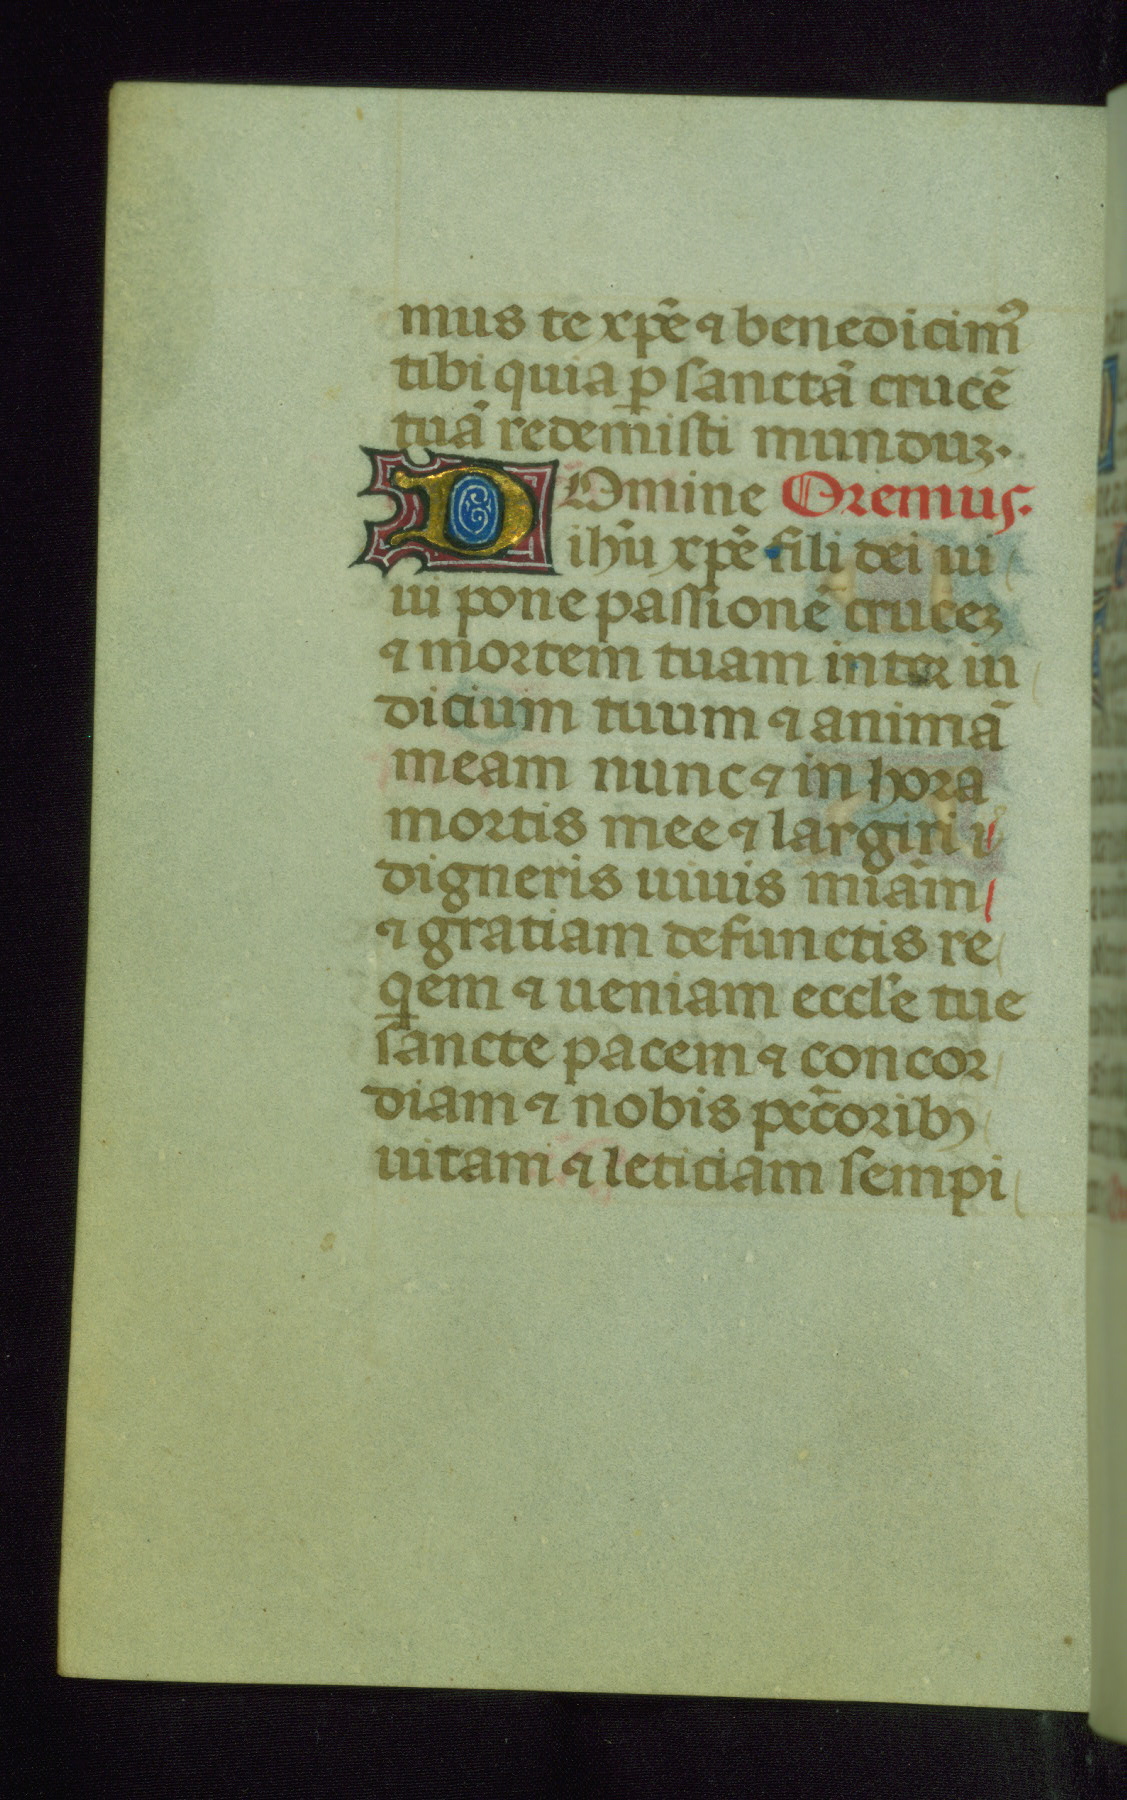 mus te xpē ⁊ benedicimꝰ
tibi quia ꝑ sanctā crucē
tuā redemisti munduz.
DOmine Oremus.
ihū xpē fili dei ui
ui pone passionē crucez
⁊ mortem tuam inter iu
dicium tuum ⁊ animā
meam nunc ⁊ in hora
mortis mee ⁊ largiri
digneris uiuis miam̄
⁊ gratiam defunctis re
qem ⁊ ueniam eccl'e tue
sancte pacem ⁊ concor
diam ⁊ nobis pecc̄orib;
uitam ⁊ leticiam sempi